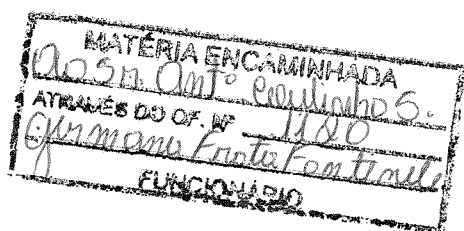 MATÉRIA ENCAMINHADA
ao Sr. Antº S.
ATRAVÉS DO OF. Nº 1180
Germana Frota Fontinele
FUNCIONÁRIO